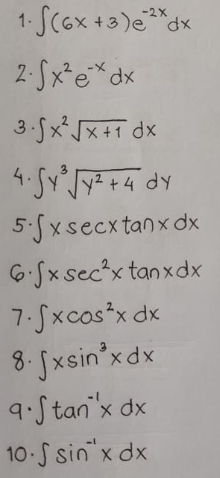 1. ∫(6x + 3)e^{-2x} dx
2. ∫x²e^{-x} dx
3. ∫x²√(x+1) dx
4. ∫y³√(y²+4) dy
5. ∫x secx tanx dx
6. ∫x sec²x tanx dx
7. ∫x cos²x dx
8. ∫x sin³x dx
9. ∫tan⁻¹x dx
10. ∫sin⁻¹x dx